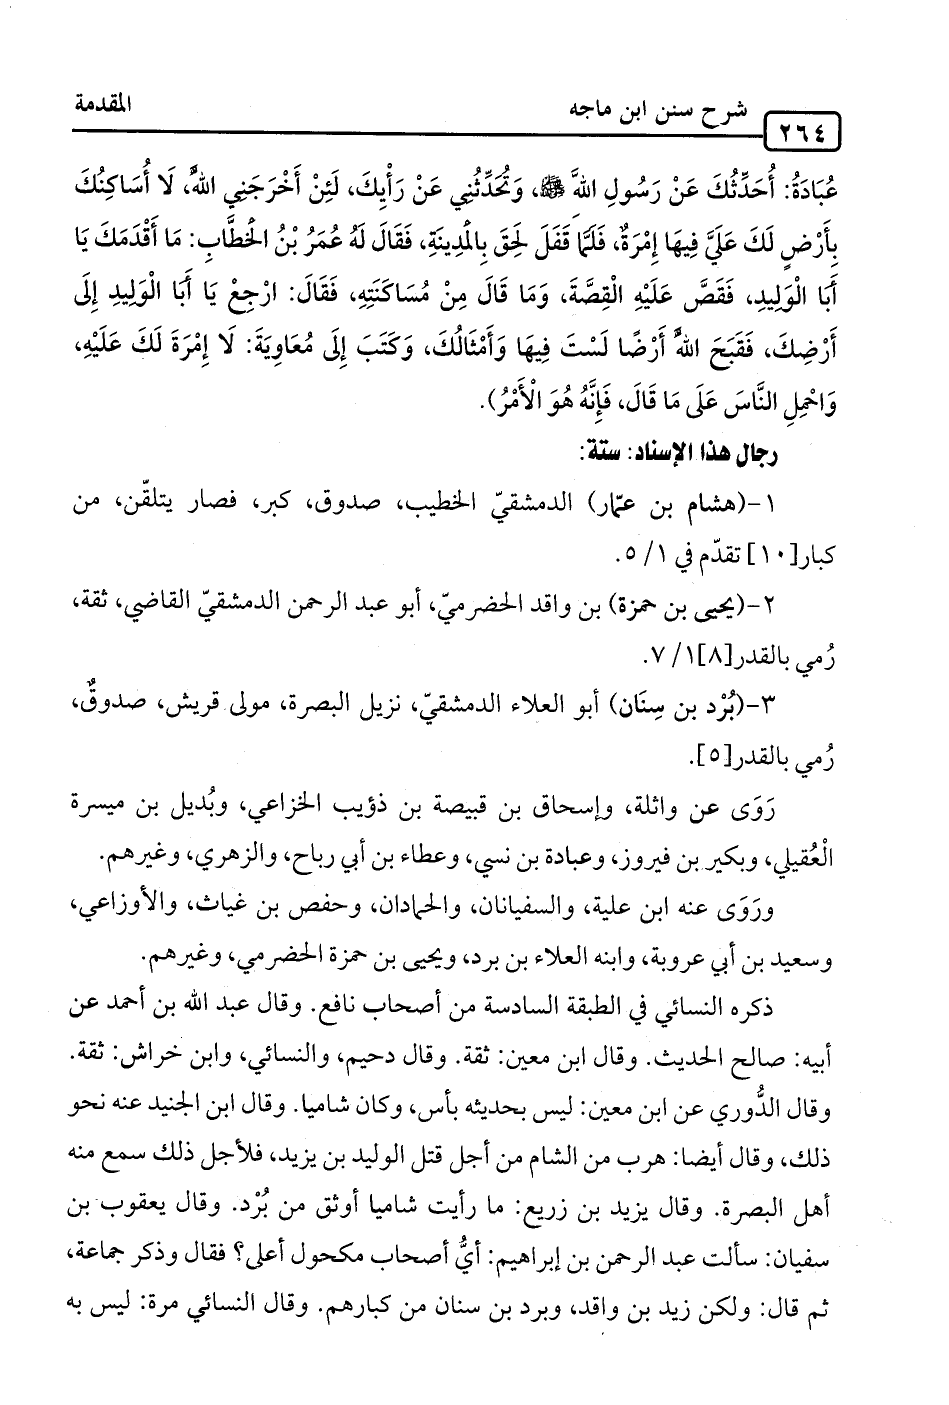 ٢٦٤
شرح سنن ابن ماجه
المقدمة
عُبَادَةُ: أُحَدِّثُكَ عَنْ رَسُولِ اللهَّ ﷺ، وَتُحَدِّثُنِي عَنْ رَأْيِكَ، لَئِنْ أَخْرَجَنِي اللهُ، لَا أُسَاكِنُكَ
بِأَرْضٍ لَكَ عَلَيَّ فِيهَا إِمْرَةٌ، فَلَمَّا قَفَلَ لَحِقَ بِالْمَدِينَةِ، فَقَالَ لَهُ عُمَرُ بْنُ الْخَطَّابِ: مَا أَقْدَمَكَ يَا
أَبَا الْوَلِيدِ، فَقَصَّ عَلَيْهِ الْقِصَّةَ، وَمَا قَالَ مِنْ مُسَاكَنَتِهِ، فَقَالَ: ارْجِعْ يَا أَبَا الْوَلِيدِ إِلَى
أَرْضِكَ، فَقَبَحَ اللهُ أَرْضًا لَسْتَ فِيهَا وَأَمْثَالُكَ، وَكَتَبَ إِلَى مُعَاوِيَةَ: لَا إِمْرَةَ لَكَ عَلَيْهِ،
وَاحْمِلِ النَّاسَ عَلَى مَا قَالَ، فَإِنَّهُ هُوَ الْأَمْرُ).
رجال هذا الإسناد: ستة:
١-(هشام بن عمّار) الدمشقيّ الخطيب، صدوق، كبر، فصار يتلقّن، من
كبار[١٠] تقدّم في ١/ ٥.
٢-(يحيى بن حمزة) بن واقد الحضرميّ، أبو عبد الرحمن الدمشقيّ القاضي، ثقة،
رُمي بالقدر[٨]١/ ٧.
٣-(بُرْد بن سِنَان) أبو العلاء الدمشقيّ، نزيل البصرة، مولى قريش، صدوقٌ،
رُمي بالقدر[٥].
رَوَى عن واثلة، وإسحاق بن قبيصة بن ذؤيب الخزاعي، وبُديل بن ميسرة
الْعُقيلي، وبكير بن فيروز، وعبادة بن نسي، وعطاء بن أبي رباح، والزهري، وغيرهم.
ورَوَى عنه ابن علية، والسفيانان، والحمادان، وحفص بن غياث، والأوزاعي،
وسعيد بن أبي عروبة، وابنه العلاء بن برد، ويحيى بن حمزة الحضرمي، وغيرهم.
ذكره النسائي في الطبقة السادسة من أصحاب نافع. وقال عبد الله بن أحمد عن
أبيه: صالح الحديث. وقال ابن معين: ثقة. وقال دحيم، والنسائي، وابن خراش: ثقة.
وقال الدُّوري عن ابن معين: ليس بحديثه بأس، وكان شاميا. وقال ابن الجنيد عنه نحو
ذلك، وقال أيضا: هرب من الشام من أجل قتل الوليد بن يزيد، فلأجل ذلك سمع منه
أهل البصرة. وقال يزيد بن زريع: ما رأيت شاميا أوثق من بُرْد. وقال يعقوب بن
سفيان: سألت عبد الرحمن بن إبراهيم: أيُّ أصحاب مكحول أعلى؟ فقال وذكر جماعة،
ثم قال: ولكن زيد بن واقد، وبرد بن سنان من كبارهم. وقال النسائي مرة: ليس به